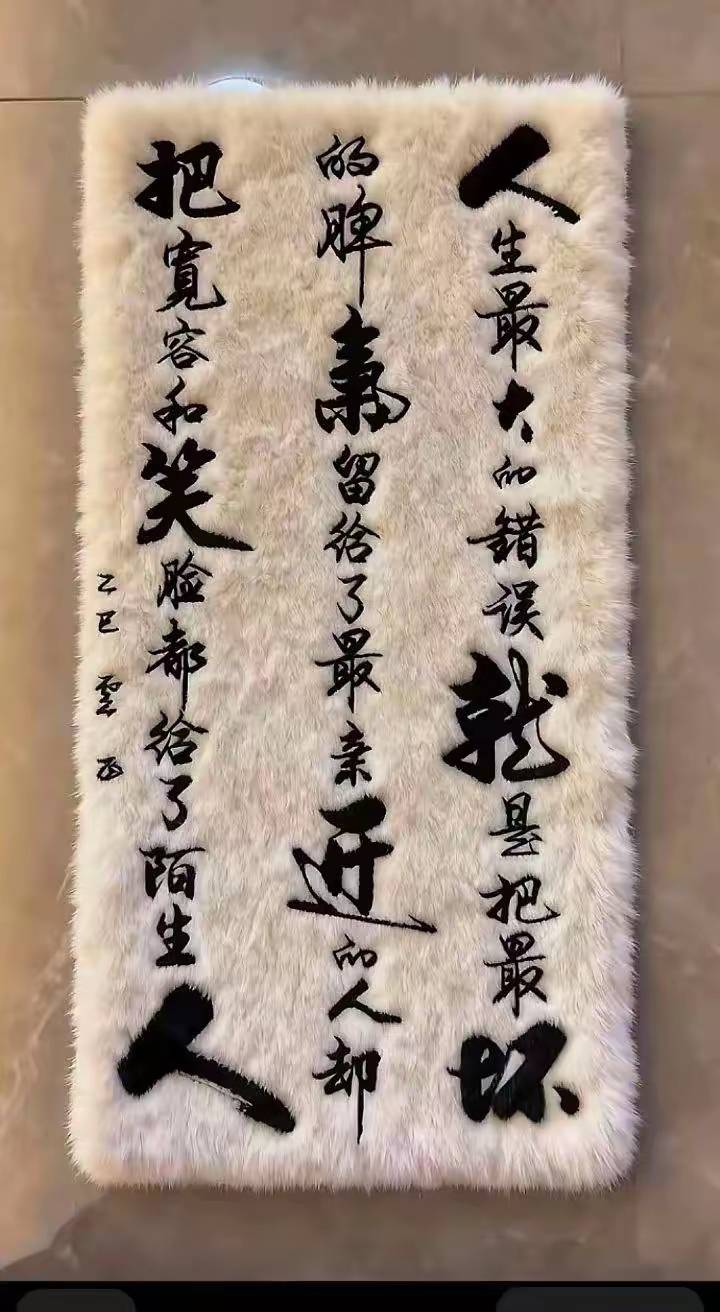 人生最大的錯误就是把最坏
的脾氣留给了最亲近的人却
把寬容和笑脸都给了陌生人
乙巳